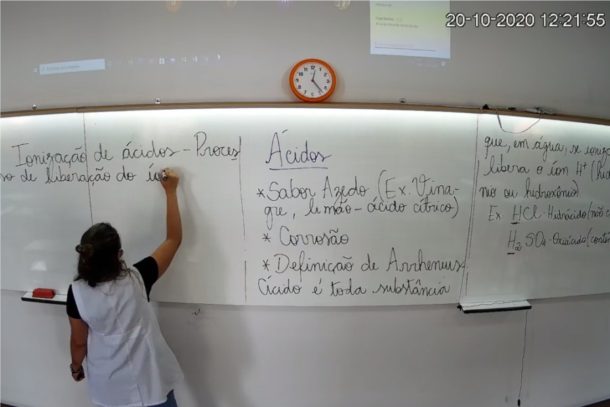 20-10-2020 12:21:55
Ionização de ácidos - Proces
so de liberação do íon
Ácidos
*Sabor Azedo (Ex. Vina-
gre, limão - ácido cítrico)
* Corrosão
* Definição de Arrhenius
Ácido é toda substância
que, em água, se
libera o íon H+
nio ou hidroxônio)
Ex HCl - Hidrácido (não
H2SO4 - Oxiácido (contém